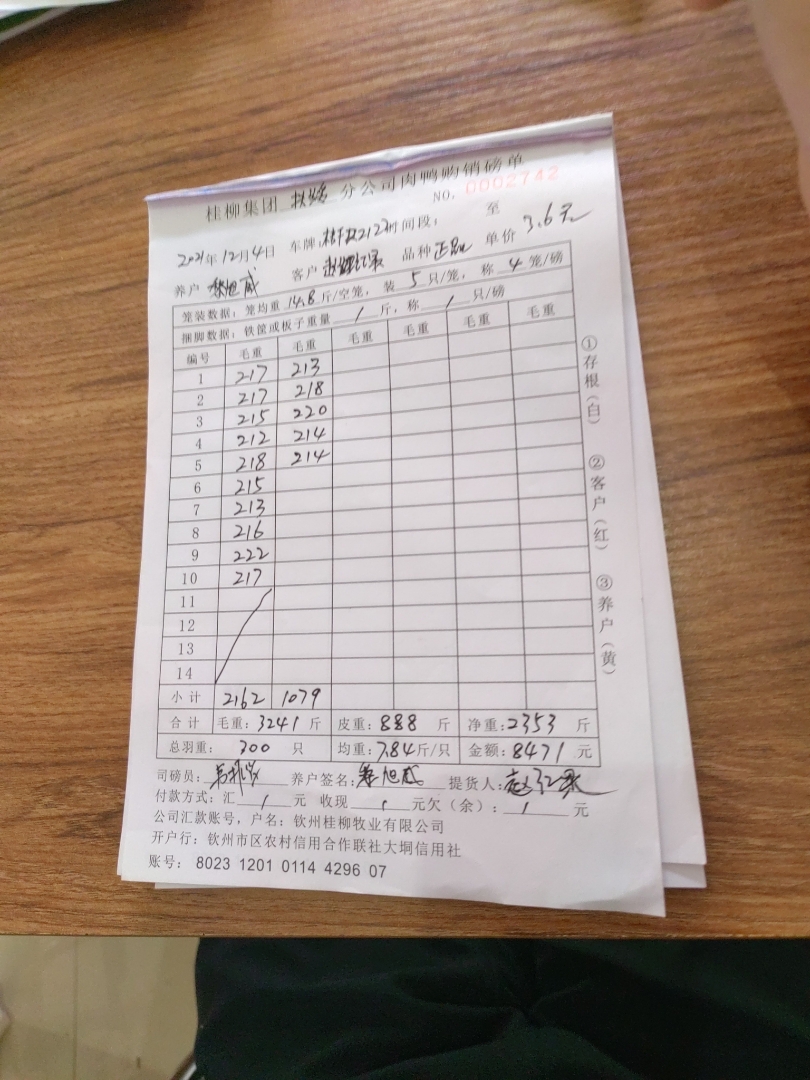 桂柳集团 分公司肉鸭购销磅单
NO. 0002742
2021年12月4日 车牌: 时间段: 至
养户 客户 品种 单价 3.6元
笼装数据: 笼均重 14.8 斤/空笼, 装 5 只/笼, 称 4 笼/磅
捆脚数据: 铁筐或板子重量 / 斤, 称 / 只/磅
编号 毛重 毛重 毛重 毛重 毛重 毛重
1 217 213
2 217 218
3 215 220
4 212 214
5 218 214
6 215
7 213
8 216
9 222
10 217
11
12
13
14
小计 2162 1079
合计 毛重: 3241 斤 皮重: 888 斤 净重: 2353 斤
总羽重: 300 只 均重: 7.84 斤/只 金额: 8471 元
司磅员: 养户签名: 提货人:
付款方式: 汇 / 元 收现 / 元欠(余): / 元
公司汇款账号, 户名: 钦州桂柳牧业有限公司
开户行: 钦州市区农村信用合作联社大垌信用社
账号: 8023 1201 0114 4296 07
①存根(白) ②客户(红) ③养户(黄)